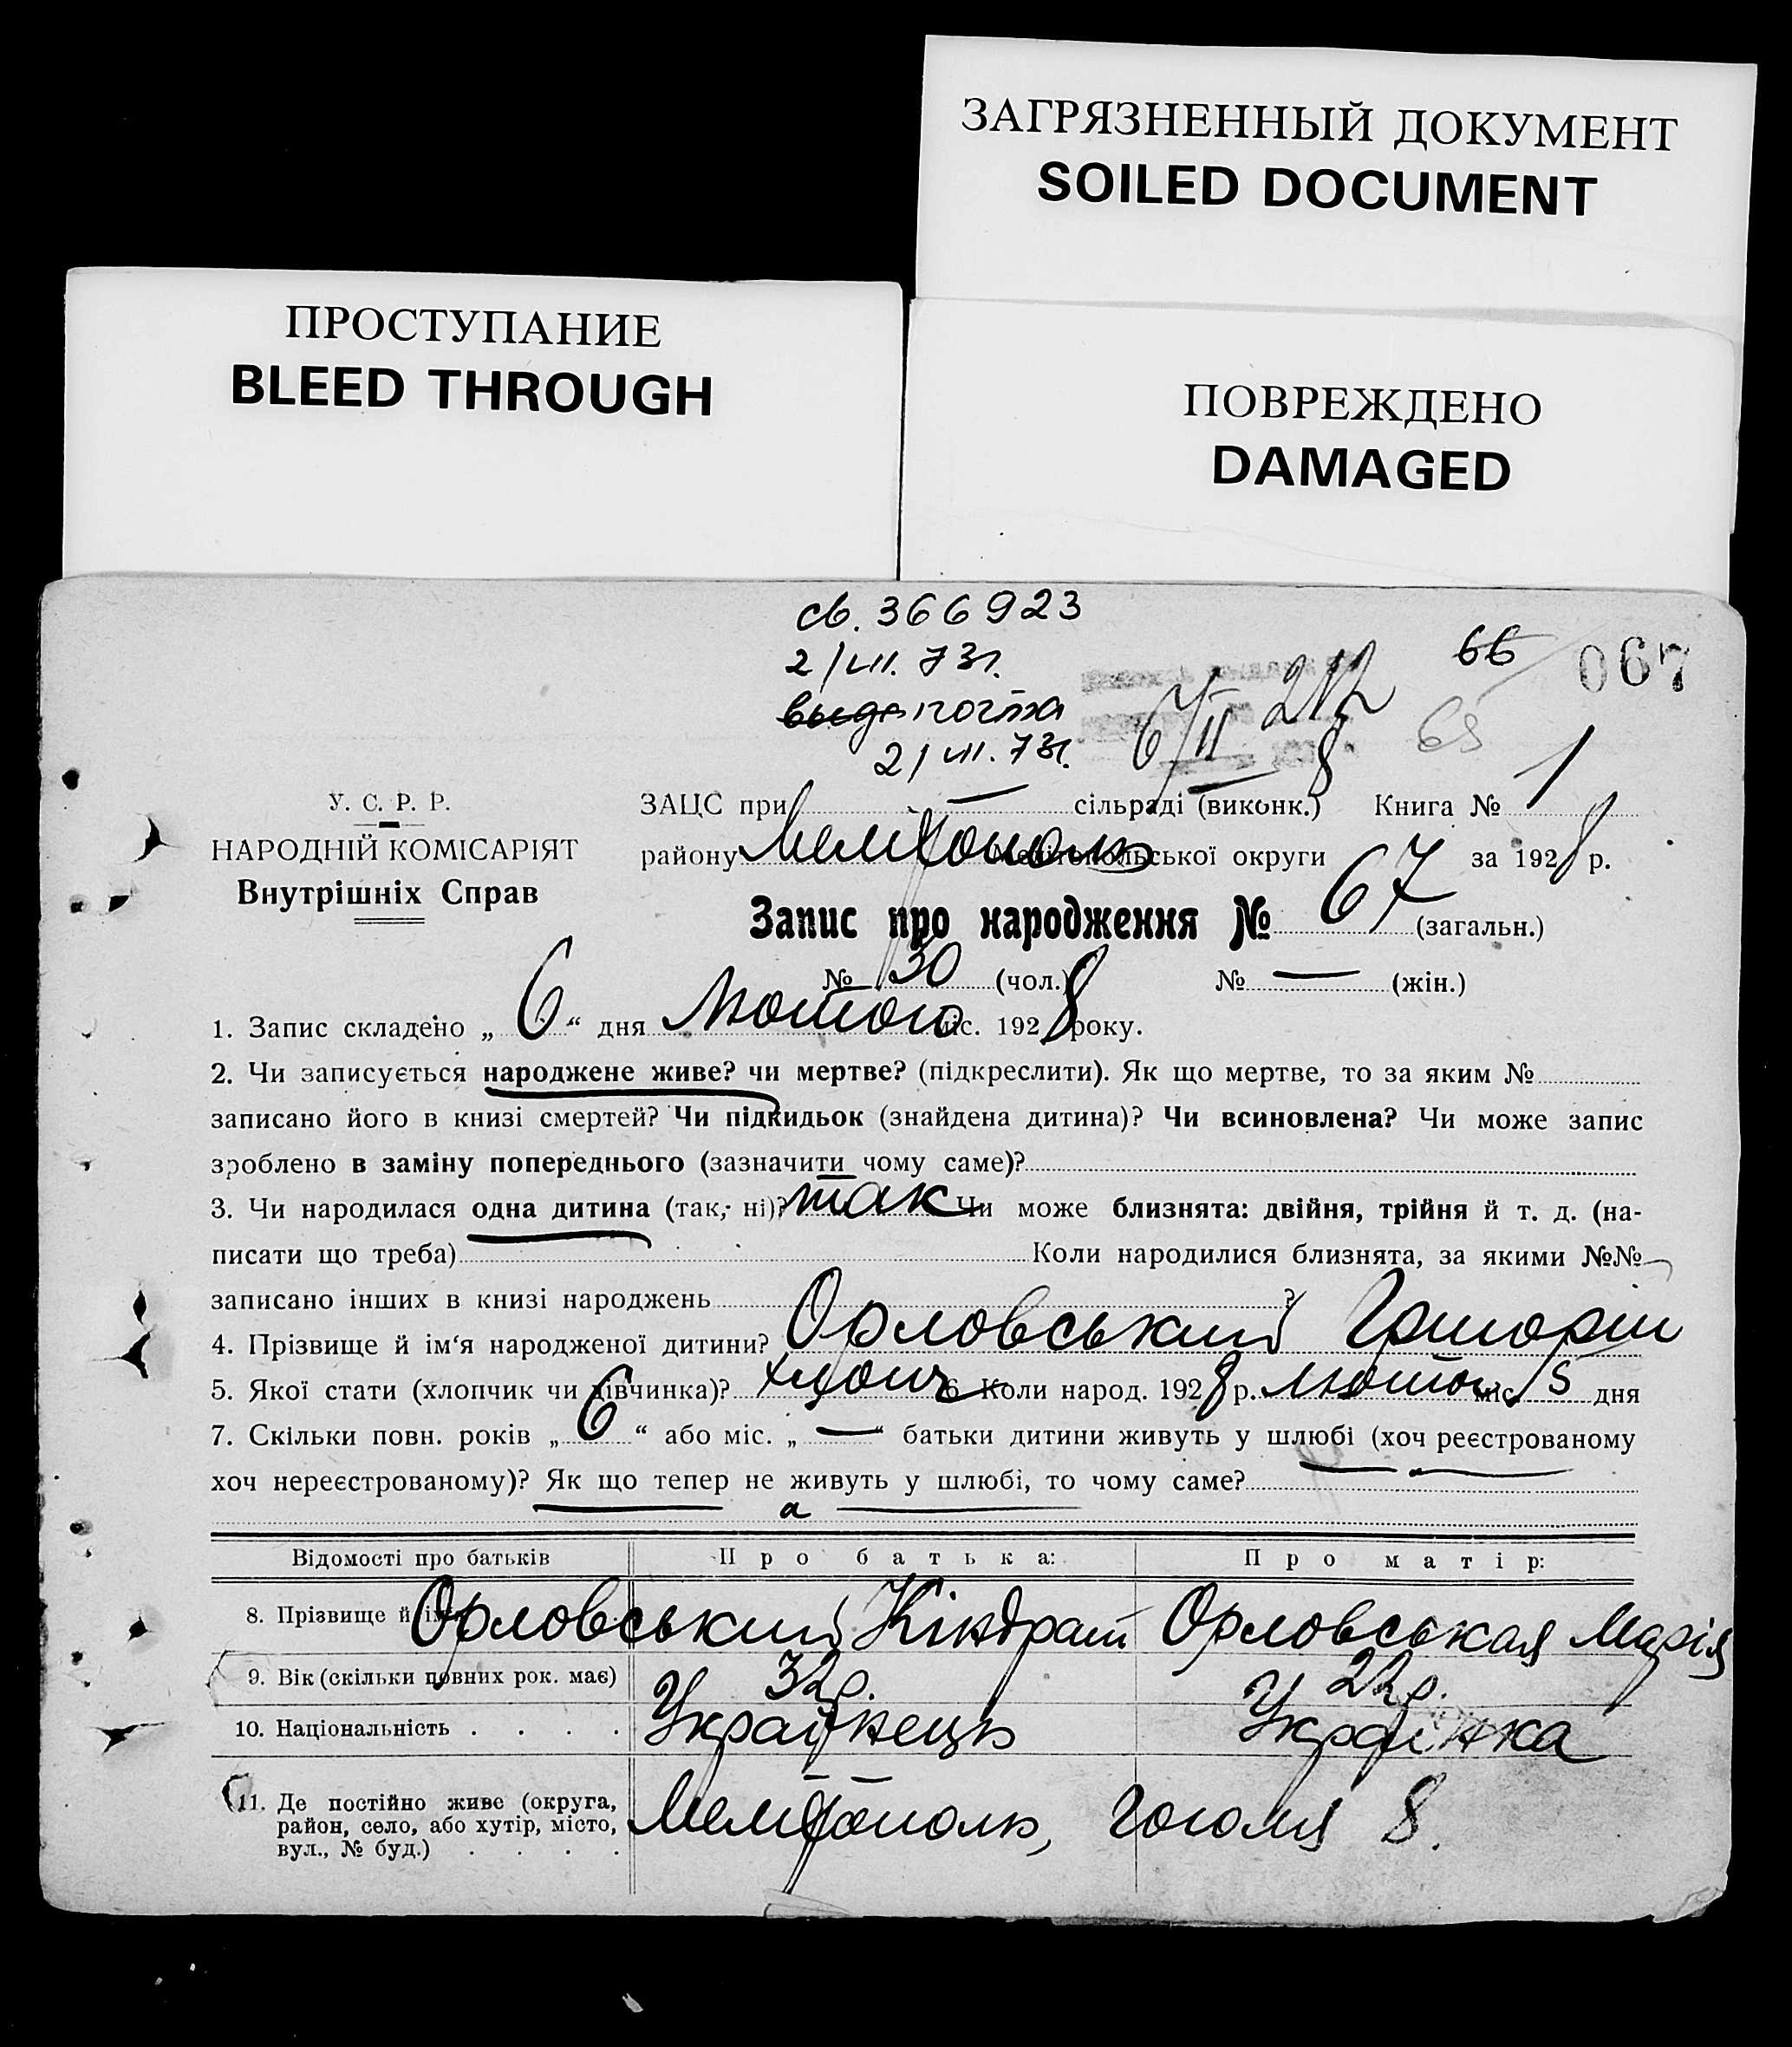 ЗАГРЯЗНЕННЫЙ ДОКУМЕНТ
SOILED DOCUMENT
ПРОСТУПАНИЕ
BLEED THROUGH
ПОВРЕЖДЕНО
DAMAGED
св. 366923
2/VII. 73г.
почта
2/VII. 73г.
6/II 8
212
66
067
65
У. С. Р. Р.
НАРОДНІЙ КОМІСАРІЯТ
Внутрішніх Справ
ЗАЦС при — сільраді (виконк.) Книга № 1
району Мелітополь Мелітопольської округи за 1928 р.
Запис про народження № 67 (загальн.)
№ 30 (чол.) № — (жін.)
1. Запис складено „ 6 “ дня Лютого міс. 1928 року.
2. Чи записується народжене живе? чи мертве? (підкреслити). Як що мертве, то за яким №
записано його в книзі смертей? Чи підкидьок (знайдена дитина)? Чи всиновлена? Чи може запис
зроблено в заміну попереднього (зазначити чому саме)?
3. Чи народилася одна дитина (так, ні)? так Чи може близнята: двійня, трійня й т. д. (на-
писати що треба) Коли народилися близнята, за якими №№
записано інших в книзі народжень ?
4. Прізвище й ім‘я народженої дитини? Орловський Григорій
5. Якої стати (хлопчик чи дівчинка)? хлопч 6. Коли народ. 1928 р. Лютого міс. 5 дня
7. Скільки повн. років „ 6 “ або міс. „ — “ батьки дитини живуть у шлюбі (хоч реєстрованому
хоч нереєстрованому)? Як що тепер не живуть у шлюбі, то чому саме?
Відомості про батьків Про батька: Про матір:
8. Прізвище й ім'я Орловський Кіндрат Орловськая Марія
9. Вік (скільки повних рок. має) 32р. 22р.
10. Національність . . . . Українець Українка
11. Де постійно живе (округа,
район, село, або хутір, місто,
вул., № буд.) . . . . Мелітополь, Гоголя 8.